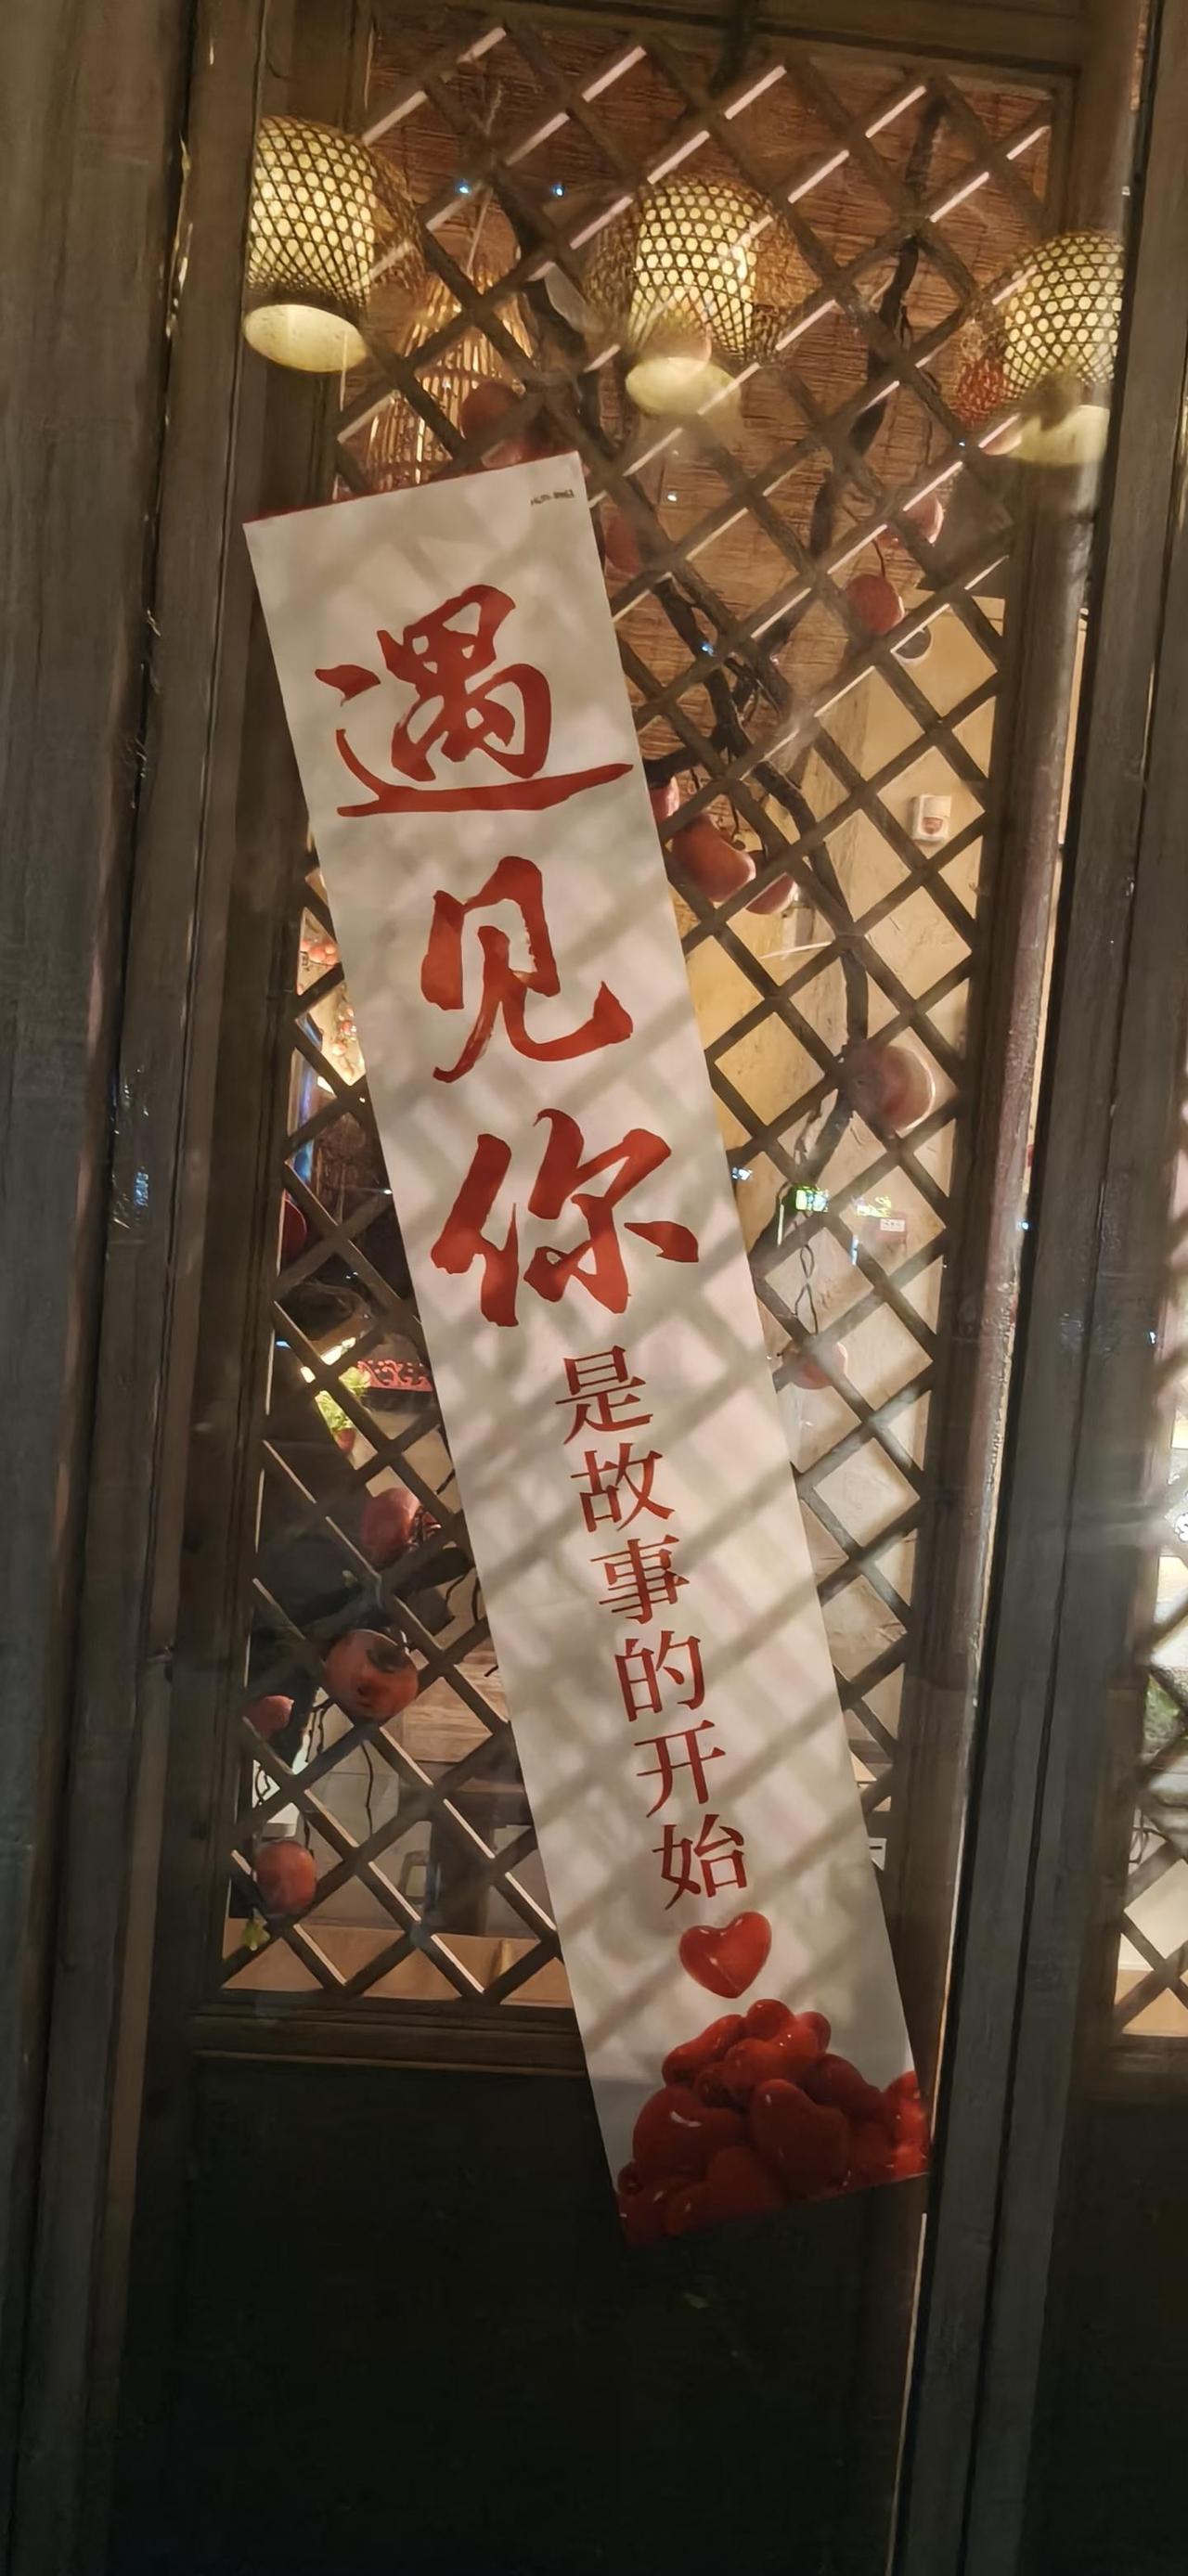 遇见你
是故事的开始